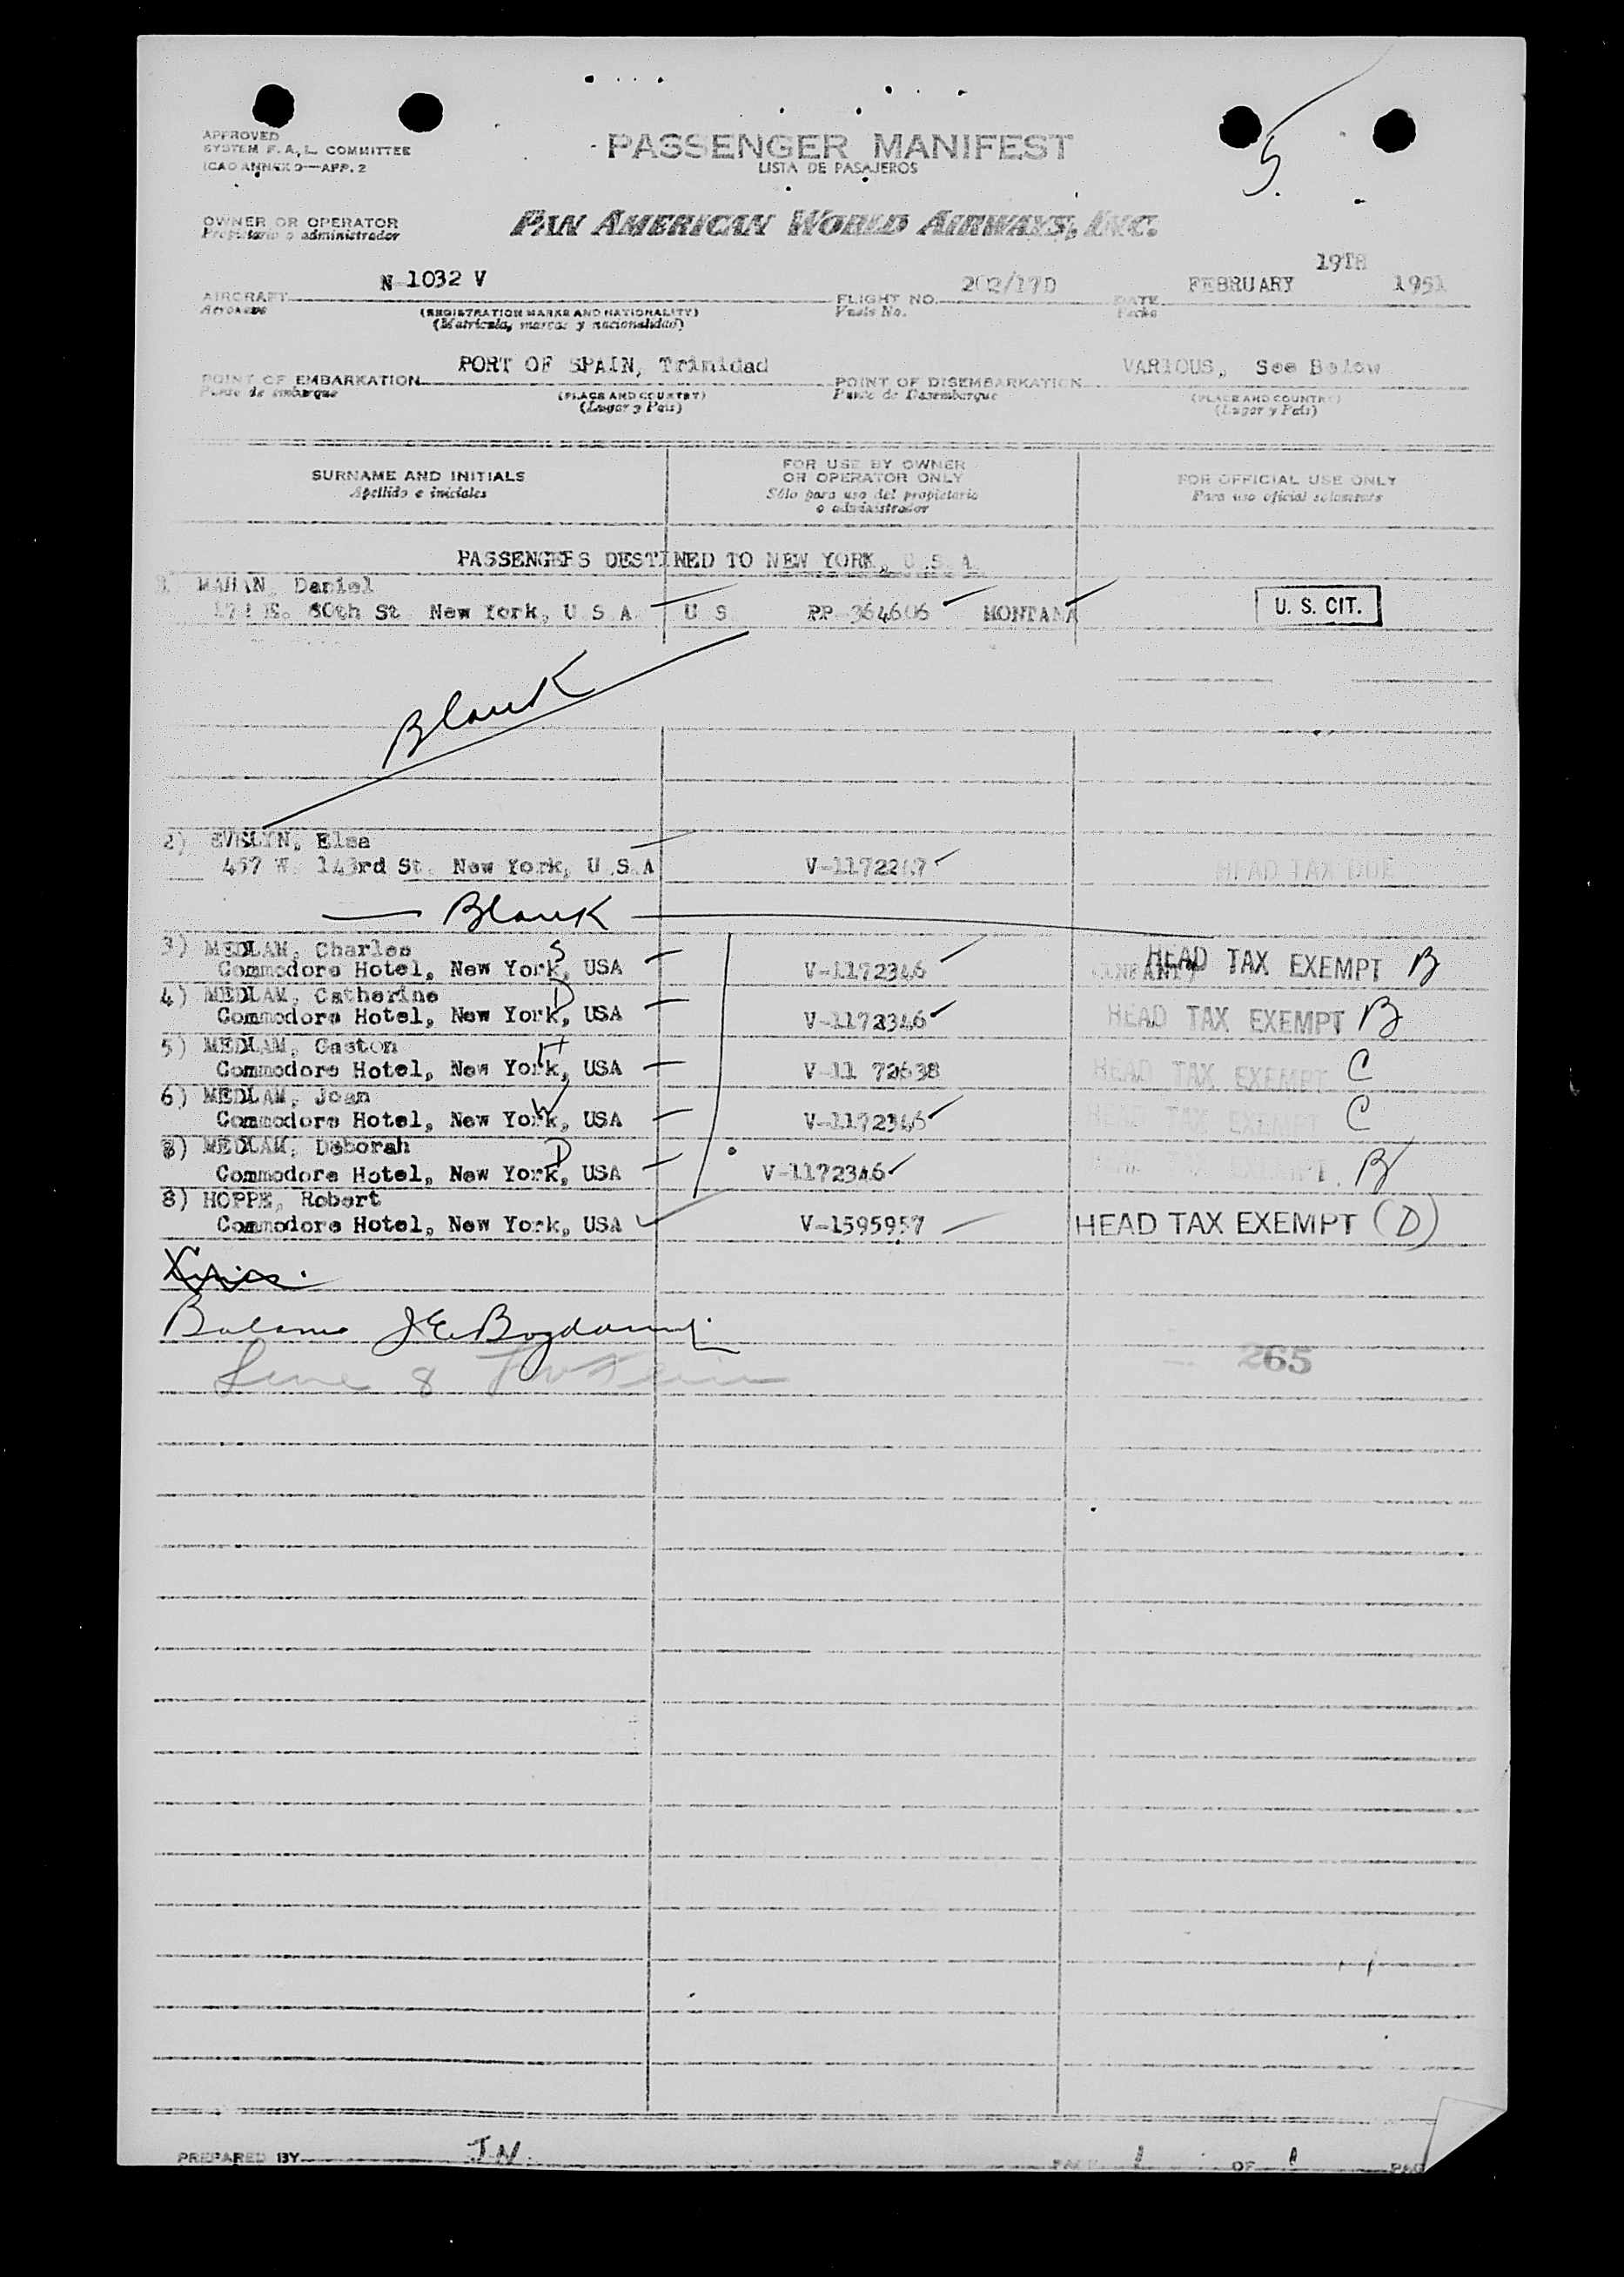 APPROVED
SYSTEM F. A. L. COMMITTEE
ICAO ANNEX 9—APP. 2
PASSENGER MANIFEST
LISTA DE PASAJEROS
5.
OWNER OR OPERATOR
Propietario o administrador
PAN AMERICAN WORLD AIRWAYS, INC.
AIRCRAFT N-1032 V FLIGHT NO. 202/17D DATE FEBRUARY 19TH 1951
Aeronave (REGISTRATION MARKS AND NATIONALITY) Vuelo No. Fecha
(Matrícula, marcas y nacionalidad)
POINT OF EMBARKATION PORT OF SPAIN, Trinidad POINT OF DISEMBARKATION VARIOUS, See Below
Punto de embarque (PLACE AND COUNTRY) Punto de Desembarque (PLACE AND COUNTRY)
(Lugar y País) (Lugar y País)
SURNAME AND INITIALS FOR USE BY OWNER OR OPERATOR ONLY FOR OFFICIAL USE ONLY
Apellido e iniciales Sólo para uso del propietario o administrador Para uso oficial solamente
PASSENGERS DESTINED TO NEW YORK, U.S.A.
MAHAN, Daniel
E. 60th St New York, U S A U S PP-364606 MONTANA U. S. CIT.
Blank
2) EVELYN, Elsa
457 W. 143rd St. New York, U.S.A V-1172217 HEAD TAX DUE
Blank
3) MEDLAM, Charles S
Commodore Hotel, New York, USA V-1172346 (INFANT) HEAD TAX EXEMPT B
4) MEDLAM, Catherine D
Commodore Hotel, New York, USA V-1172346 HEAD TAX EXEMPT B
5) MEDLAM, Gaston H
Commodore Hotel, New York, USA V-11 72638 HEAD TAX EXEMPT C
6) MEDLAM, Joan W
Commodore Hotel, New York, USA V-1172346 HEAD TAX EXEMPT C
MEDLAM, Deborah D
Commodore Hotel, New York, USA V-1172346 HEAD TAX EXEMPT B
8) HOPPE, Robert
Commodore Hotel, New York, USA V-1595957 HEAD TAX EXEMPT (D)
265
PREPARED BY J.N. PAGE 1 OF 1